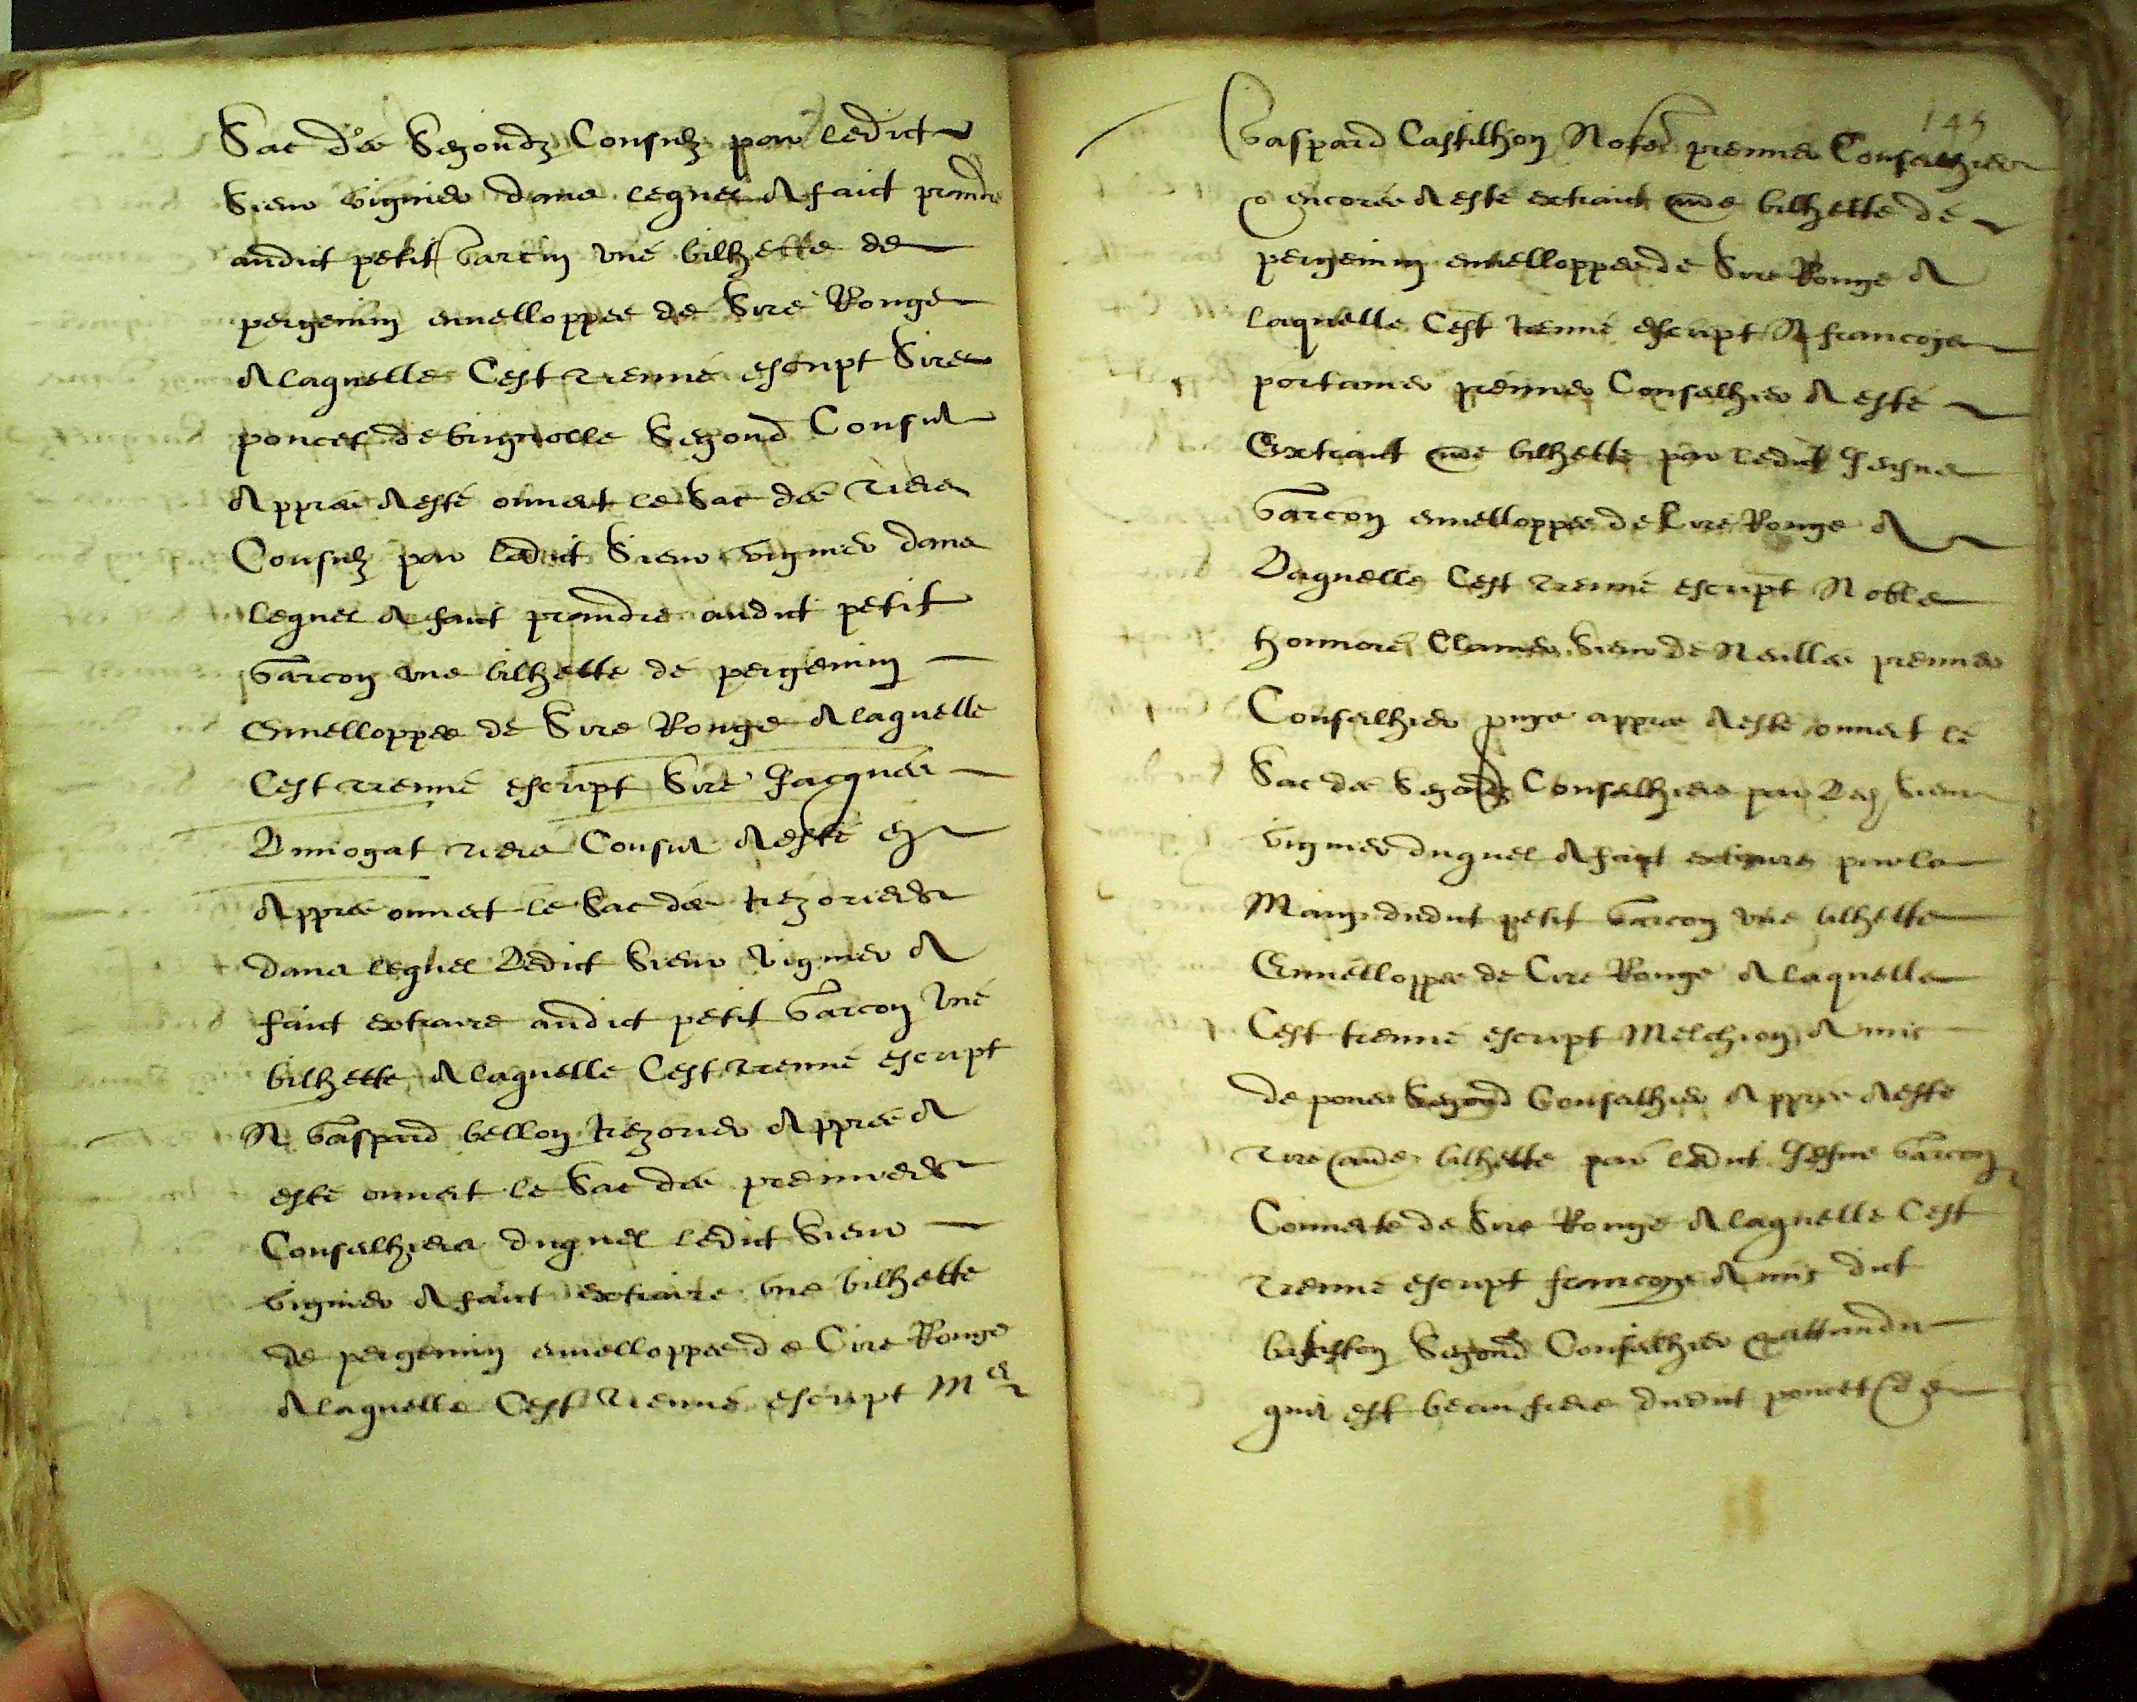 Sac des Segondz Consulz par ledict
Sieur viguier dans lequel A faict prandre
audict petit Garcon une bilhette de
pergemin envelloppee de Sire Rouge
A laquelle Cest trenné escript Sire
poncet de brignolle Segond Consul
Appres A esté ouvert le Sac des tiers
Consulz par ledict Sieur viguier dans
lequel A faict prandre audict petit
Garcon une bilhette de pergemin
Envelloppee de Sire Rouge A laquelle
Cest trenné escript Sire Jacques
tiers Consul A esté
Appres ouvert le Sac des trezoriers
dans lequel Ledict Sieur viguier A
faict extraire audict petit Garcon une
bilhette A laquelle Cest trenné escript
N Gaspard bellon trezorier Appres A
esté ouvert le Sac des premiers
Conselhiers duquel ledict Sieur
viguier A faict extraire une bilhette
de pergemin envelloppee de Cire Rouge
A laquelle Cest trenné escript Me
145
Gaspard Castilhon Notere premier Conselhier
encores A esté extraict aude bilhette de
pergemin envelloppee de Sire Rouge A
laquelle Cest trenné escript N francoys
portanier premier Conselhier A esté
Extraict aude bilhette par ledict Jeune
Garcon envelloppee de Cire Rouge A
Laquelle Cest trenné escript Noble
honnoré Sieur de premier
Conselhier puys appres A esté ouvert le
Sac des Segondz Conselhiers par Led Sieur
viguier duquel A faict extraire par la
Main dudict petit Garcon une bilhette
Envelloppee de Cire Rouge A laquelle
Cest trenné escript Melchion Amic
de pons Segond Conselhier Appres A esté
tiré aude bilhette par ledict Jeune Garcon
Couverte de Sire Rouge A laquelle Cest
trenné escript francoys Amic dict
Segond Conselhier & attandu
quil est beau frere dudict poncet de